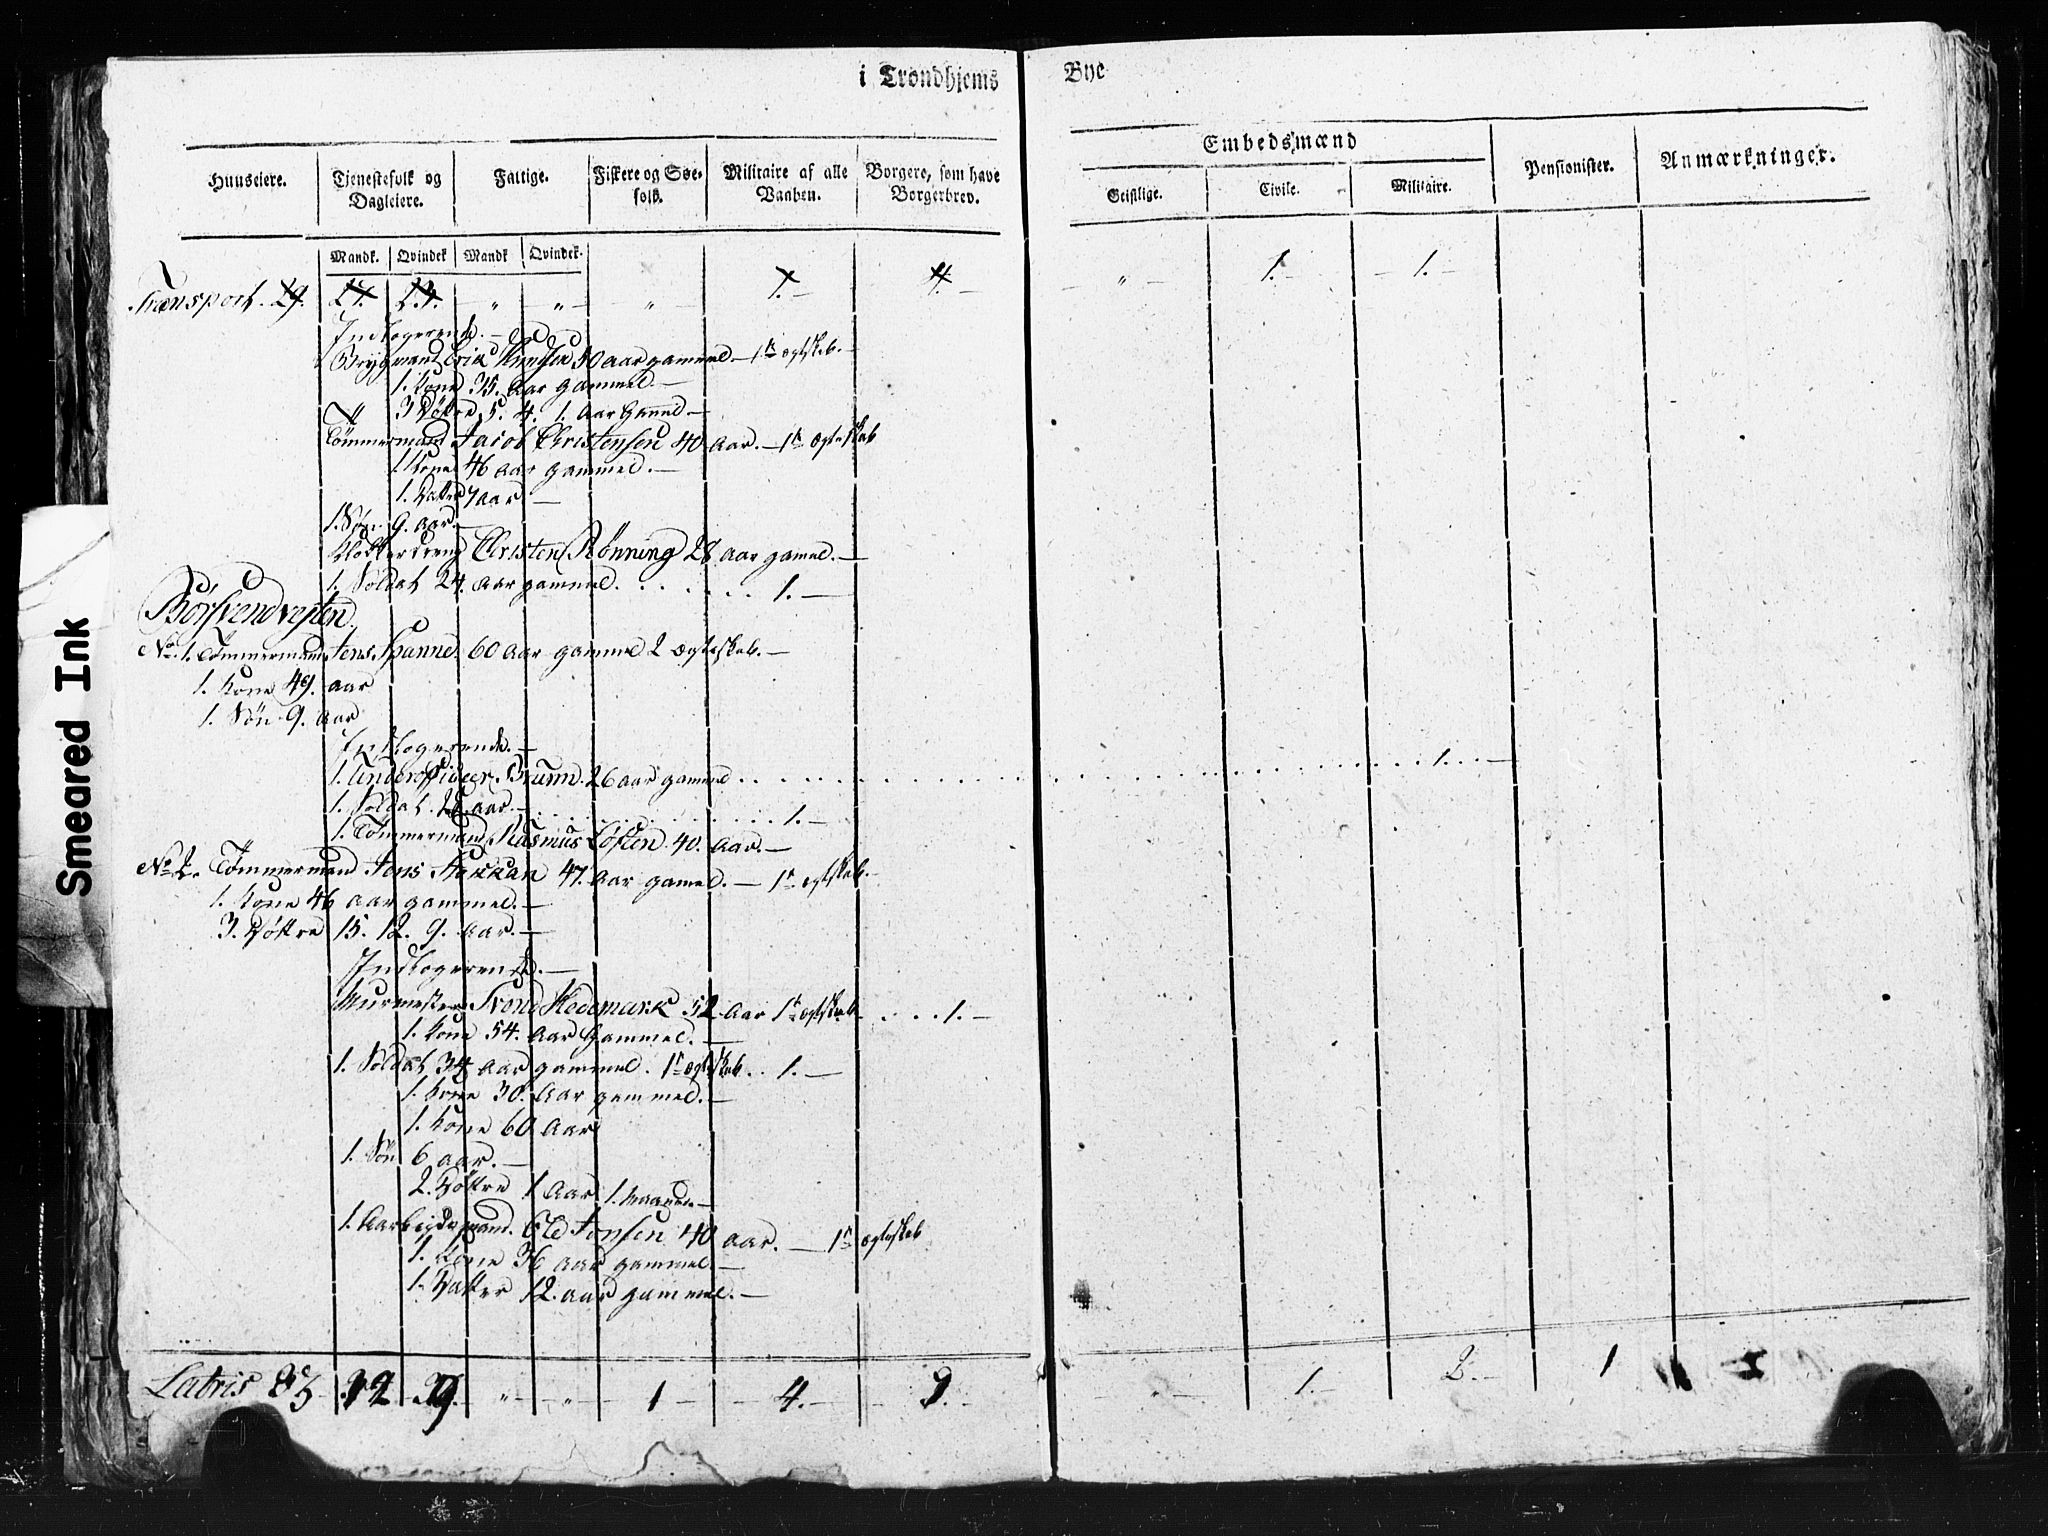 i Trondhjems Bye
Embedsmænd
Huuseiere. Tjenestefolk og Dagleiere. Fattige. Fiskere og Søe-folk. Militaire af alle Vaaben. Borgere, som have Borgerbrev. Geistlige. Civile. Militaire. Pensionister. Anmærkninger.
Mandk. Qvindek Mandk Qvindek.
Transport. 29. " " " 1.— 4.— " 1.— 1.—
Indlogerende.—
Brygmand Erik Knudsen 50 aar gammel.— 1te ægtskab.—
1. Kone 35. Aar gammel.—
3 Døttre 5. 4. 1. Aar Gammel—
Tømmermand Jacob Christensen 40 aar.— 1te Ægteskab
1. Kone 46 aar gammel.—
1. Datter 7 aar—
1. Søn 9. aar.—
Christen Rønning 28 aar gamel.—
1. Soldat 24. aar gammel. . . . . . . 1.—
Børsvendvejten
No. 1. Tømmermand Jens Spanne. 60 aar gammel 2 Ægteskab.—
1. Kone 49. aar
1. Søn 9. aar
Indlogerende.—
1. Underofficeer Brunn. 26 aar gammel . . . . . . 1.—
1. Soldat. aar.— . . . . . 1.—
1. Tømmermand Rasmus Løften. 40. aar.—
No. 2. Tømmermand Jens Stokkan 47. Aar gamel.— 1te ægteskab.
1. Kone 46 aar gammel.—
3. Døttre 15. 12. 9. aar.—
Indlogerende.—
Murmester Trond Hedemark 52 Aar 1te Ægteskab. . . . 1.—
1. Kone 54. Aar Gammel.—
1. Soldat 34 Aar gammel. 1te ægteskab. . 1.—
1. Kone 30. Aar gammel.—
1. Kone 60 Aar
1. Søn 6 aar.—
2. Døttre 1 Aar 1. maaned—
1. Arbeidsmand. Ole Jonsen 40 aar.— 1te ægteskab
1. Kone 36 aar gammel—
1. Datter 12. aar gammel.—
Latris 35 " " 1 4.— 9.— " 1.— 2.— 1
Smeared Ink